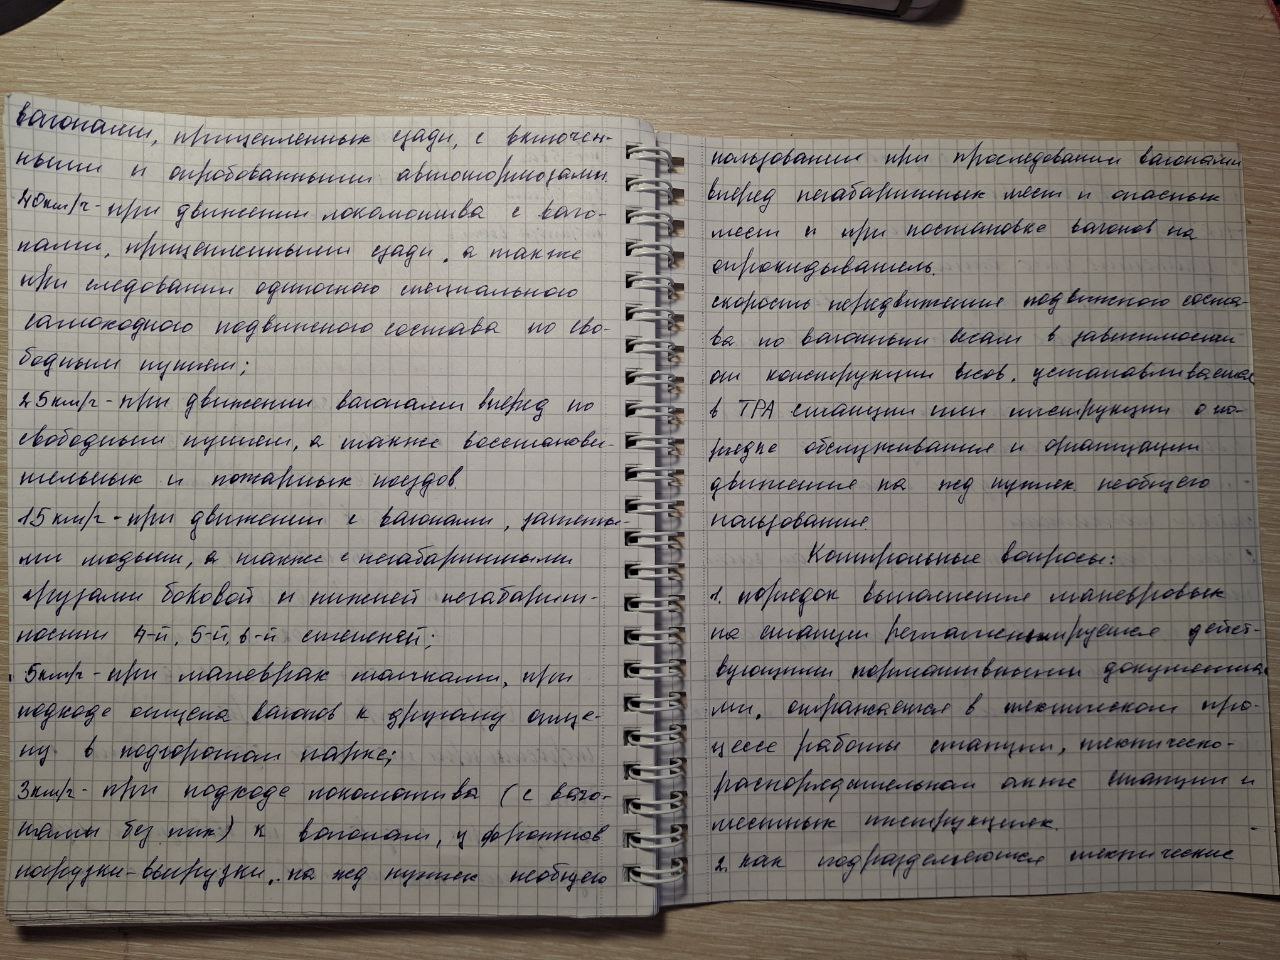 вагонами, прицепленных сзади, с включен-
ными и опробованными автотормозами.
40км/г - при движении локомотива с ваго-
нами, прицепленными сзади, а также
при следовании одиночного специального
самоходного подвижного состава по сво-
бодным путям;
25км/г - при движении вагонами вперед по
свободным путям, а также восстанови-
тельных и пожарных поездов.
15км/г - при движении с вагонами, заняты-
ми людьми, а также с негабаритными
грузами боковой и нижней негабарит-
ности 4-й, 5-й, 6-й степеней;
5км/г - при маневрах толчками, при
подходе отцепа вагонов к другому отце-
пу в подгорочном парке;
3км/г - при подходе локомотива (с ваго-
нами без них) к вагонам, у фронтов
погрузки-выгрузки, на жд путях необщего
пользования при проследовании вагонами
вперед негабаритных мест и опасных
мест и при постановке вагонов на
опрокидыватель.
скорость передвижения подвижного соста-
ва по вагонным весам в зависимости
от конструкции весов, устанавливается
в ТРА станции или инструкции о по-
рядке обслуживания и организации
движения на жд путях необщего
пользования
Контрольные вопросы:
1. порядок выполнения маневровых
на станции регламентируется дейст-
вующими нормативными документа-
ми, отражается в техническом про-
цессе работы станции, техническо-
распорядительном акте станции и
местных инструкциях.
2. как подразделяются технические